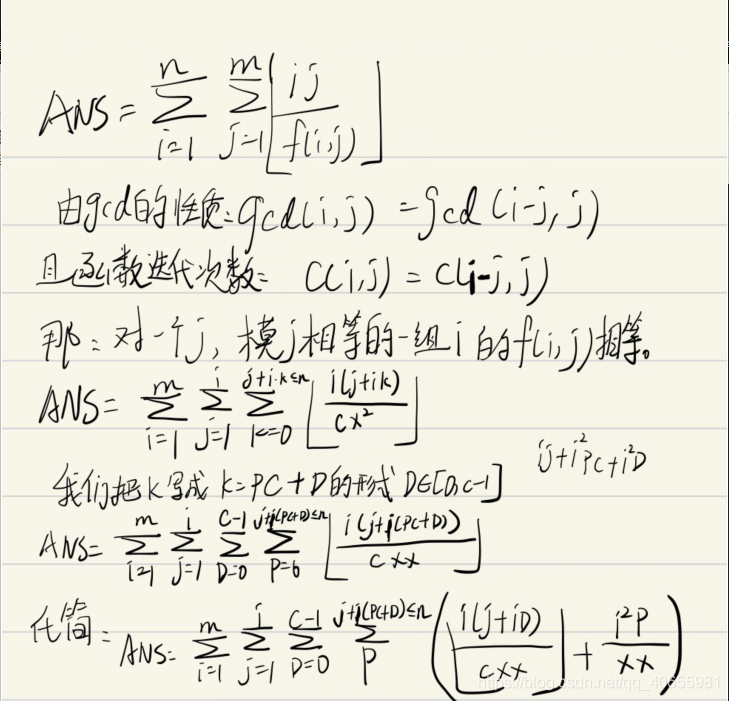 ANS = \sum_{i=1}^{n} \sum_{j=1}^{m} \lfloor \frac{ij}{f(i,j)} \rfloor
由gcd的性质: gcd(i,j) = gcd(i-j,j)
且函数迭代次数: C(i,j) = C(i-j,j)
那: 对一个j, 模j相等的一组i的f(i,j)相等。
ANS = \sum_{i=1}^{m} \sum_{j=1}^{i} \sum_{k=0}^{j+i·k≤n} \lfloor \frac{i(j+ik)}{cx^2} \rfloor
ij+i^2pc+i^2D
我们把k写成 k=PC+D的形式 D∈[0,c-1]
ANS= \sum_{i=1}^{m} \sum_{j=1}^{i} \sum_{D=0}^{C-1} \sum_{P=0}^{j+i(PC+D)≤n} \lfloor \frac{i(j+i(PC+D))}{cxx} \rfloor
化简: ANS= \sum_{i=1}^{m} \sum_{j=1}^{i} \sum_{D=0}^{C-1} \sum_{P}^{j+i(PC+D)≤n} ( \lfloor \frac{i(j+iD)}{cxx} \rfloor + \frac{i^2P}{xx} )
https://blog.csdn.net/qq_40655981